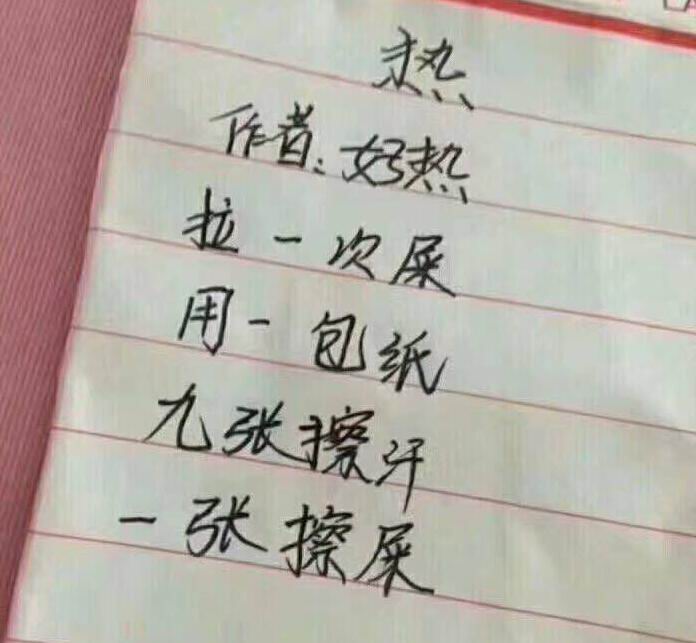 热
作者:好热
拉一次屎
用一包纸
九张擦汗
一张擦屎